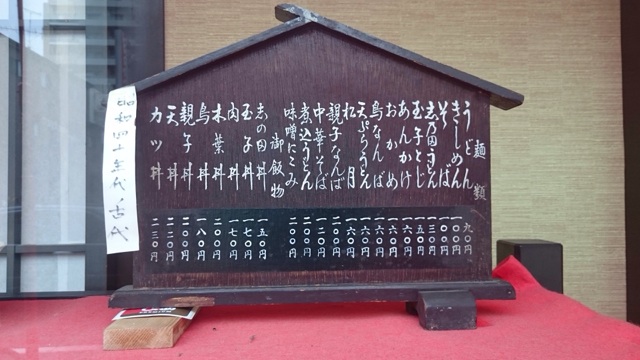 麺類
うどん 九〇円
きしめん 一〇〇円
そば 一〇〇円
志乃田うどん 一三〇円
玉子とじ 一五〇円
あんかけ 一六〇円
おかめ 一六〇円
鳥なんば 一六〇円
天ぷらうどん 一六〇円
松月 一六〇円
親子なんば 二〇〇円
中華そば 一二〇円
煮込うどん 二〇〇円
味噌にこみ 二〇〇円
御飯物
志の田丼 一五〇円
玉子丼 一七〇円
肉丼 一七〇円
木葉丼 二〇〇円
鳥丼 一八〇円
親子丼 二〇〇円
天丼 二二〇円
カツ丼 二三〇円
昭和四十